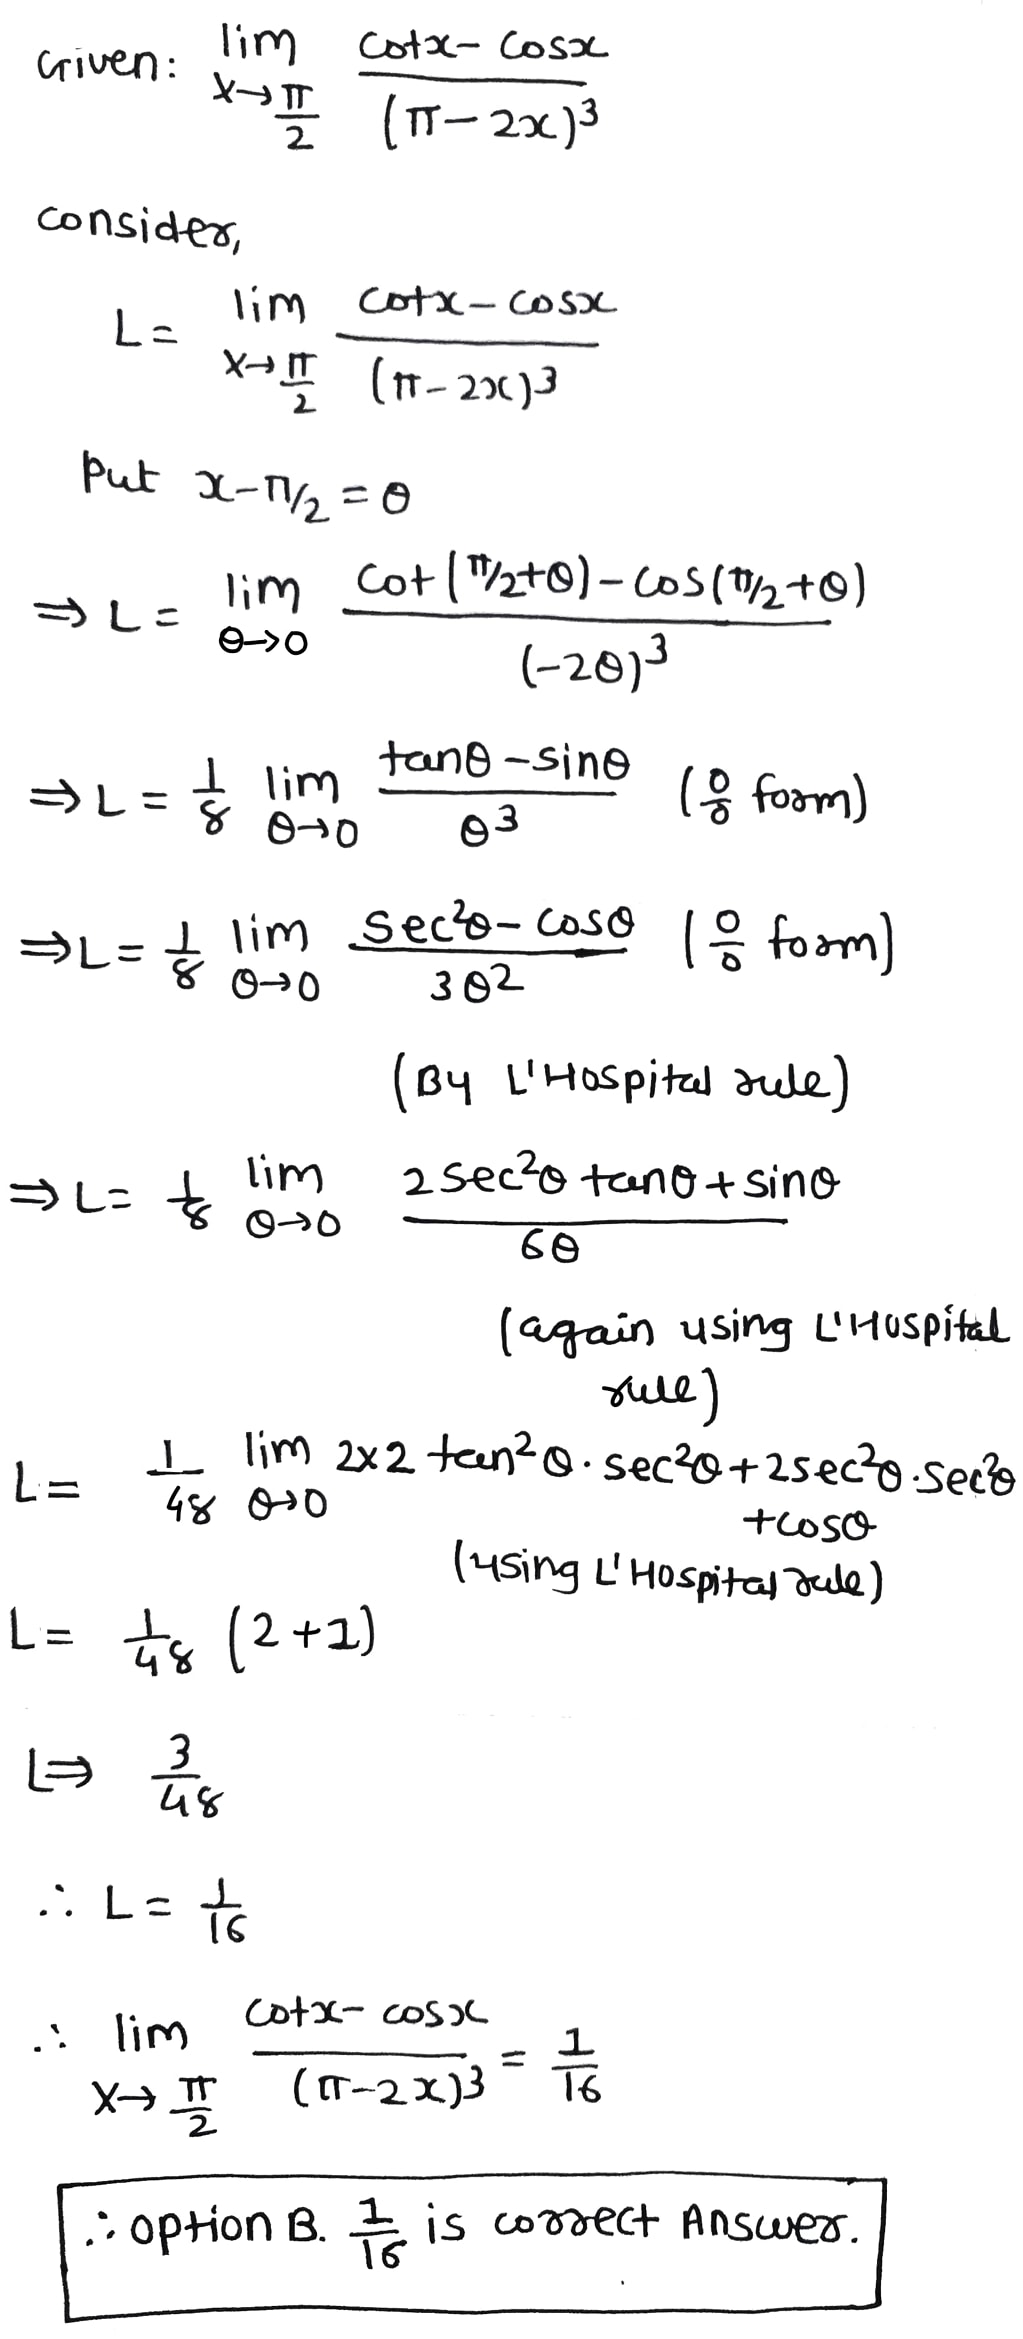 Given: lim x→π/2 (cotx - cosx)/(π - 2x)^3
consider,
L = lim x→π/2 (cotx - cosx)/(π - 2x)^3
Put x - π/2 = θ
⇒ L = lim θ→0 (cot(π/2+θ) - cos(π/2+θ))/(-2θ)^3
⇒ L = 1/8 lim θ→0 (tanθ - sinθ)/θ^3 (0/0 form)
⇒ L = 1/8 lim θ→0 (sec²θ - cosθ)/3θ² (0/0 form)
(By L'Hospital rule)
⇒ L = 1/8 lim θ→0 (2sec²θ tanθ + sinθ)/6θ
(again using L'Hospital
rule)
L = 1/48 lim θ→0 2x2 tan²θ . sec²θ + 2sec²θ . sec²θ
+cosθ
(using L'Hospital rule)
L = 1/48 (2+1)
L ⇒ 3/48
∴ L = 1/16
∴ lim x→π/2 (cotx - cosx)/(π - 2x)^3 = 1/16
∴ option B. 1/16 is correct Answer.